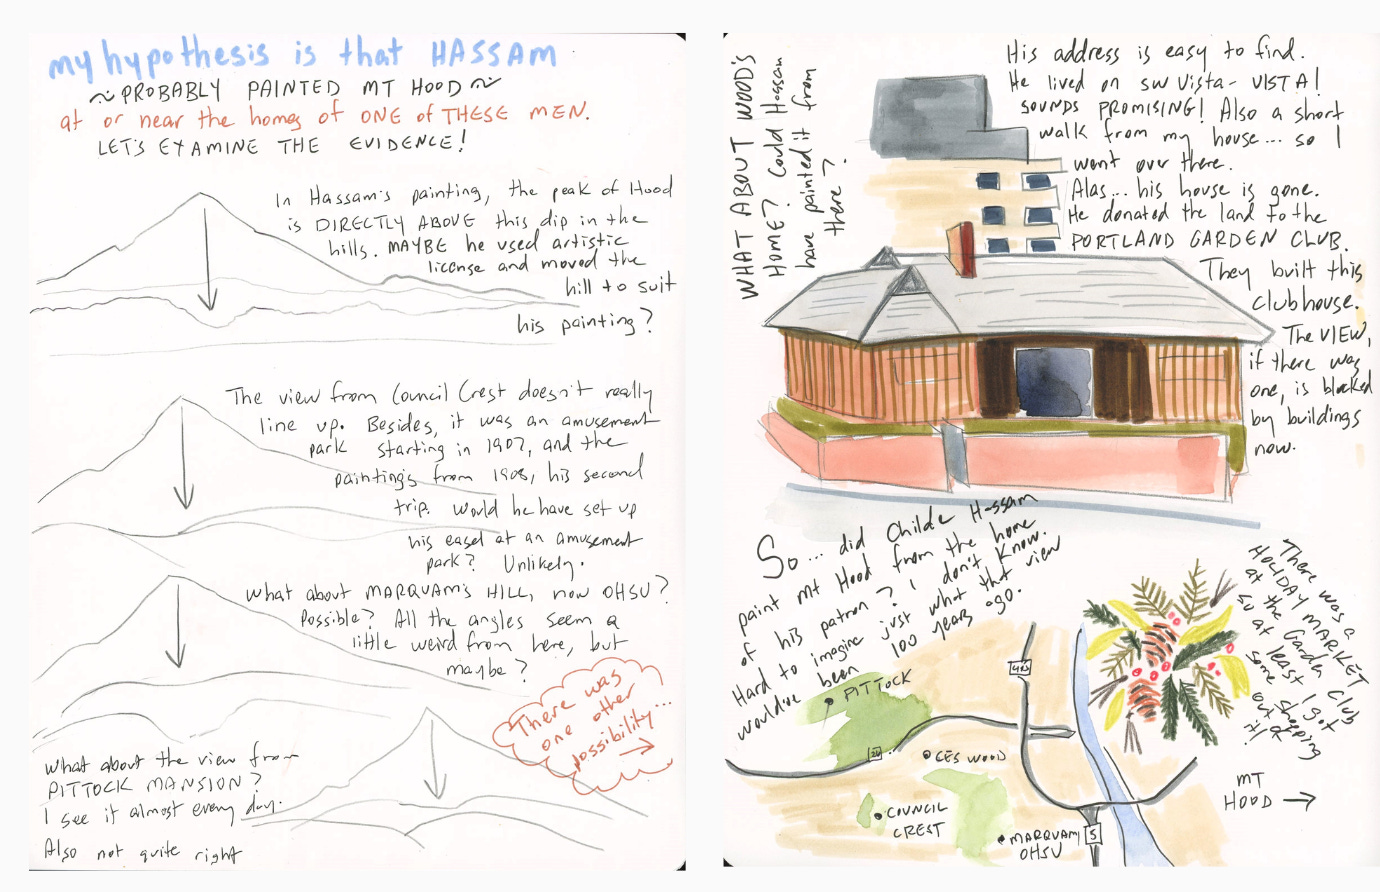 my hypothesis is that HASSAM
~PROBABLY PAINTED MT HOOD~
at or near the homes of ONE of THESE MEN.
LET'S EXAMINE THE EVIDENCE!
In Hassam's painting, the peak of Hood
is DIRECTLY ABOVE this dip in the
hills. MAYBE he used artistic
license and moved the
hill to suit
his painting?
The view from Council Crest doesn't really
line up. Besides, it was an amusement
park starting in 1907, and the
painting's from 1908, his second
trip. Would he have set up
his easel at an amusement
park? Unlikely.
What about MARQUAM'S HILL, now OHSU?
Possible? All the angles seem a
little weird from here, but
maybe?
There was
one other
possibility...
What about the view from
PITTOCK MANSION?
I see it almost every day.
Also not quite right
WHAT ABOUT WOOD'S
HOME? Could Hassam
have painted it from
there?
His address is easy to find.
He lived on SW Vista- VISTA!
SOUNDS PROMISING! Also a short
walk from my house... so I
went over there.
Alas... his house is gone.
He donated the land to the
PORTLAND GARDEN CLUB.
They built this
clubhouse.
The VIEW,
if there was
one, is blocked
by buildings
now.
So... did Childe Hassam
paint Mt Hood from the home
of his patron? I don't know.
Hard to imagine just what that view
would've been 100 years ago.
There was a
HOLIDAY MARKET
at the Garden Club
so at least I got
some shopping
out of
it!
PITTOCK
405
26
CES WOOD
COUNCIL
CREST
MARQUAM
OHSU
5
MT
HOOD